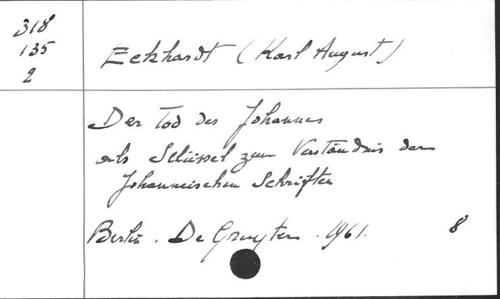 318
135
2
Eckhardt (Karl August)
Der Tod des Johannes
als Schlüssel zum Verständnis der
Johanneischen Schriften
Berlin. De Gruyter. 1961. 8